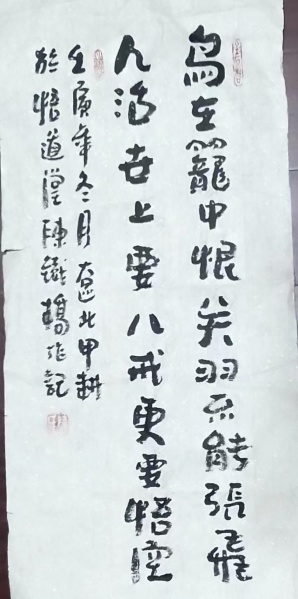 鸟在籠中恨关羽不能張飛
人活世上要八戒更要悟空
壬寅年冬月 北甲耕
於悟道堂陳鐵楊作記